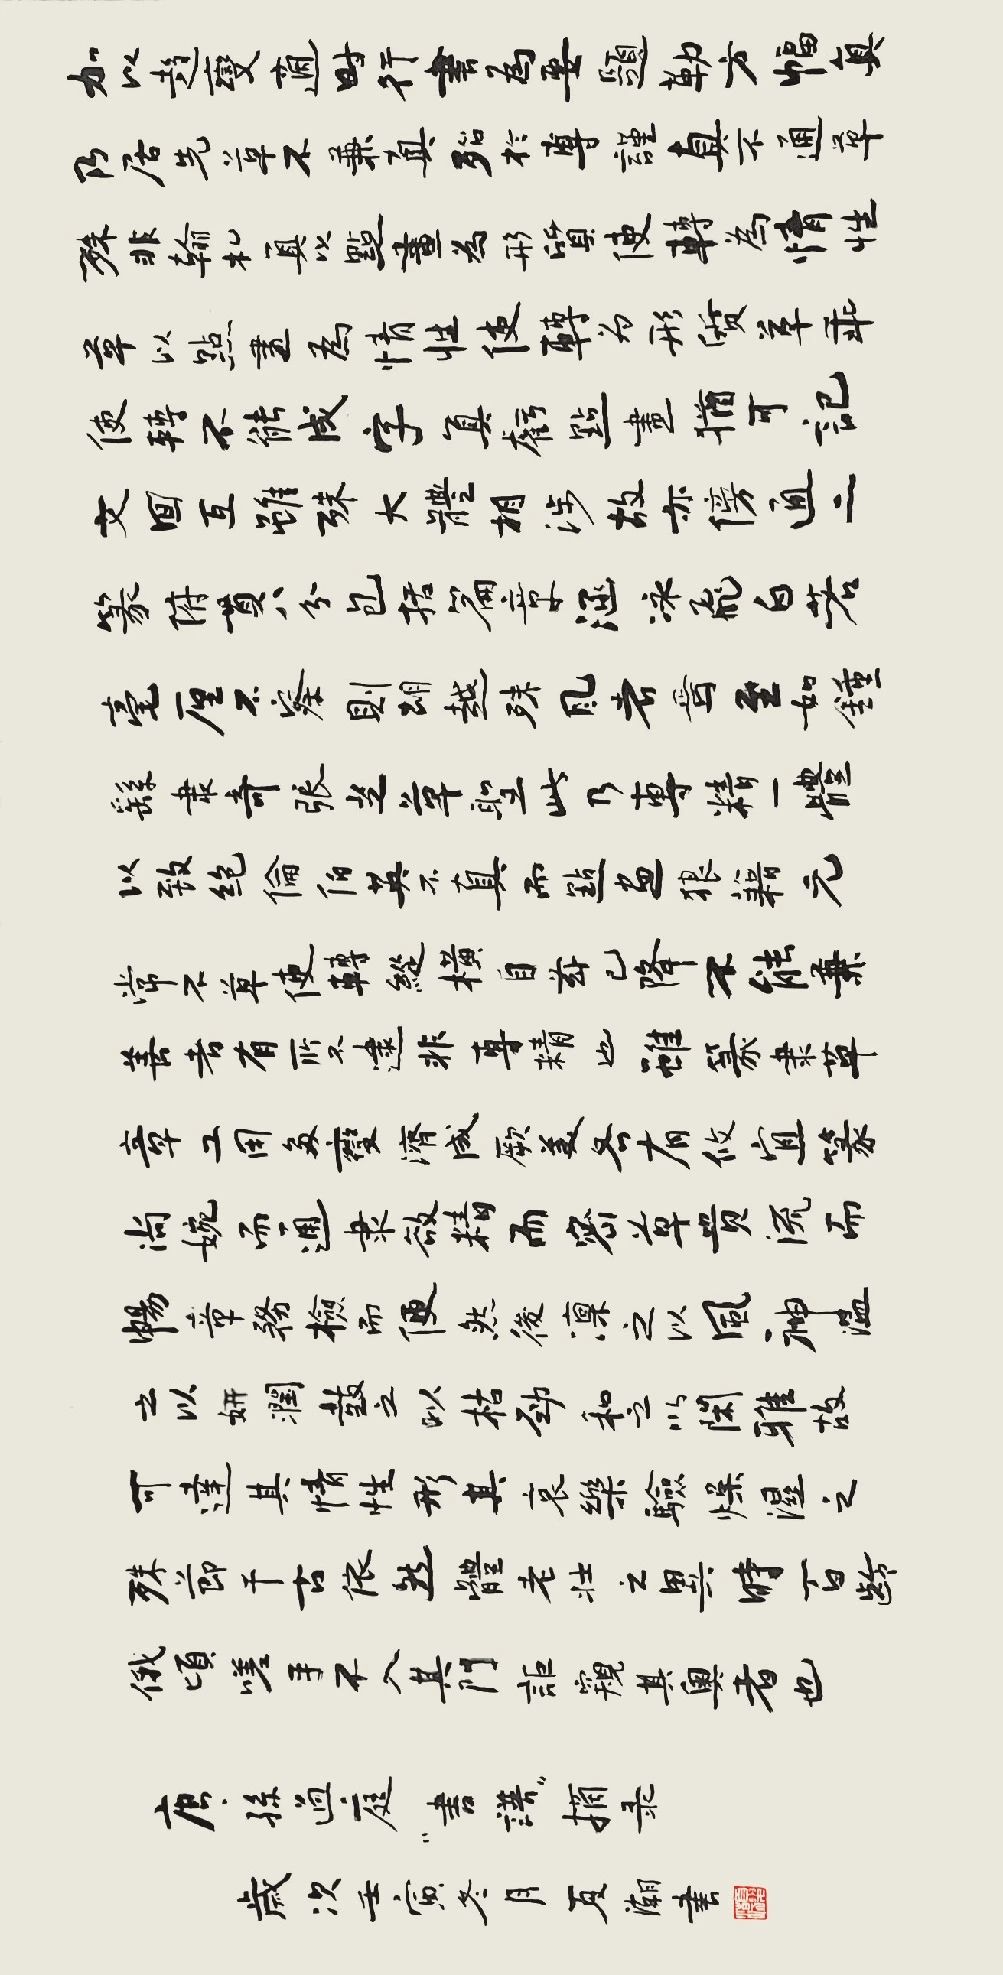 加以趋變適時行書為要題勒方幅真
乃居先草不兼真殆於專謹真不通草
殊非翰札真以點畫為形質使轉為情性
草以點畫為情性使轉为形质草乖
使轉不能成字真虧點畫猶可記
文回互雖殊大體相涉故亦傍通二
篆俯貫八分包括篇章涵泳飛白若
毫厘不察則胡越殊風者焉至如鍾
繇隶奇張芝草聖此乃專精一體
以致绝倫伯英不真而點画狼藉元
常不草使轉縱橫自兹已降不能兼
善者有所不逮非專精也雖篆隶草
章工用多變濟成厥美各有攸宜篆
尚婉而通隶欲精而密草貴流而
暢章務檢而便然後凛之以風神温
之以妍潤鼓之以枯勁和之以閑雅故
可達其情性形其哀樂驗燥濕之
殊節千古依然體老壮之異時百齡
俄頃嗟乎不入其門詎窺其奧者也
唐·孫過庭“書譜”摘录
歲次壬寅冬月 潮書